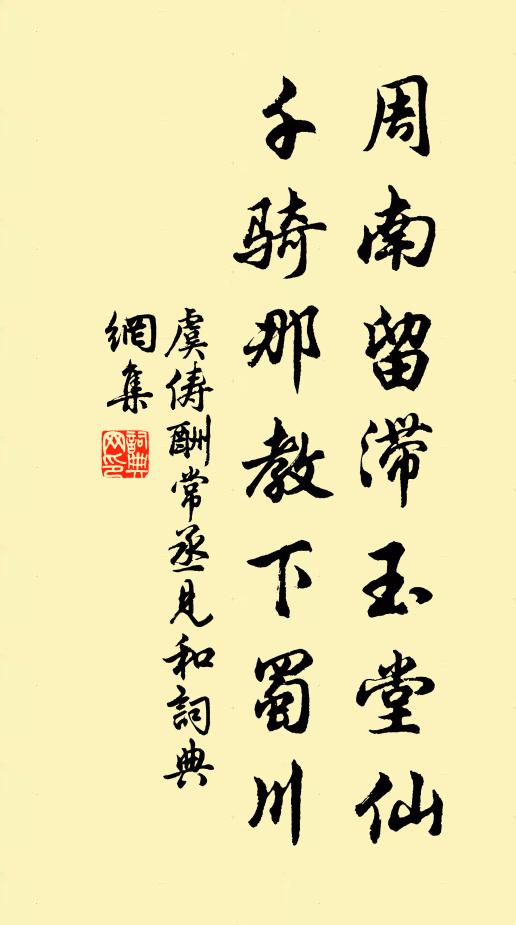 周南留滞玉堂仙
千骑那教下蜀川
虞俦酬常丞見和詞典
網集
詞典网印